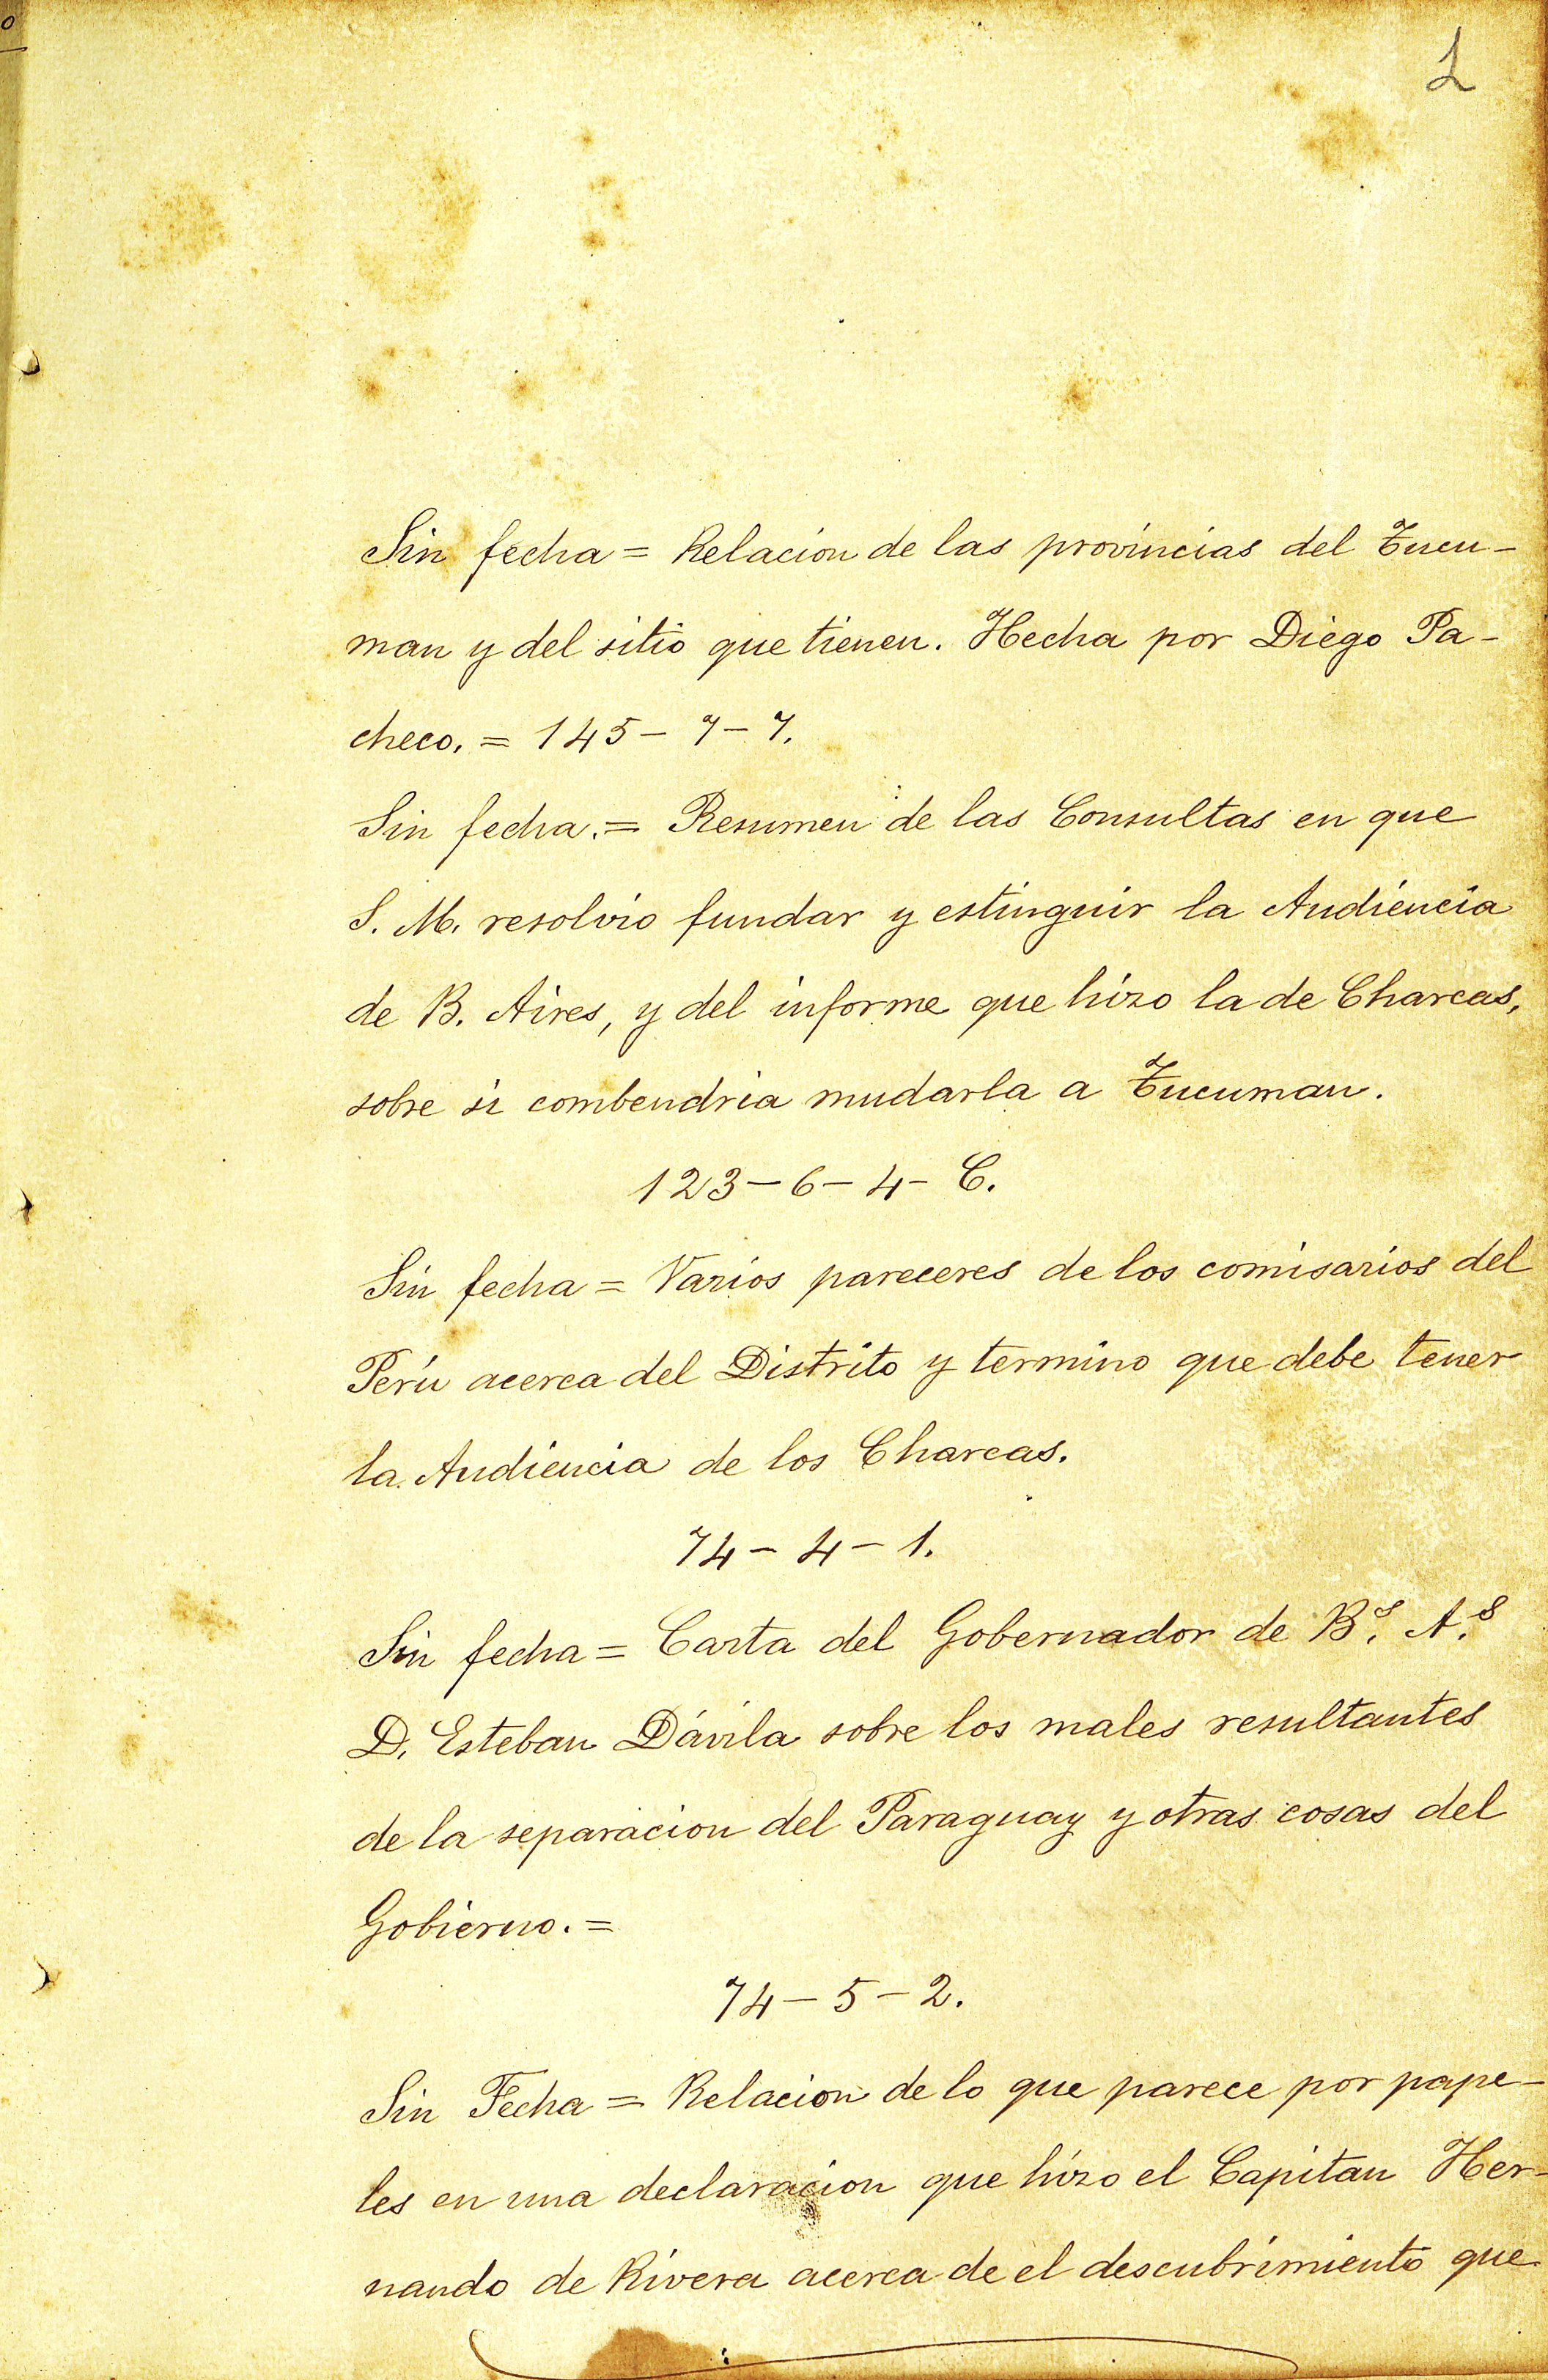 1
Sin fecha = Relacion de las provincias del Tucu-
man y del sitio que tienen. Hecha por Diego Pa-
checo. = 145 - 7 - 7.
Sin fecha. = Resumen de las Consultas en que
S. M. resolvio fundar y estinguir la Audiencia
de B. Aires, y del informe que hizo la de Charcas,
sobre si combendria mudarla a Tucuman.
123 - 6 - 4 - C.
Sin fecha = Varios pareceres de los comisarios del
Perú acerca del Distrito y termino que debe tener
la Audiencia de los Charcas.
74 - 4 - 1.
Sin fecha = Carta del Gobernador de B.s A.s
D. Esteban Dávila sobre los males resultantes
de la separacion del Paraguay y otras cosas del
Gobierno. =
74 - 5 - 2.
Sin Fecha = Relacion de lo que parece por pape-
les en una declaracion que hizo el Capitan Her-
nando de Rivera acerca de el descubrimiento que